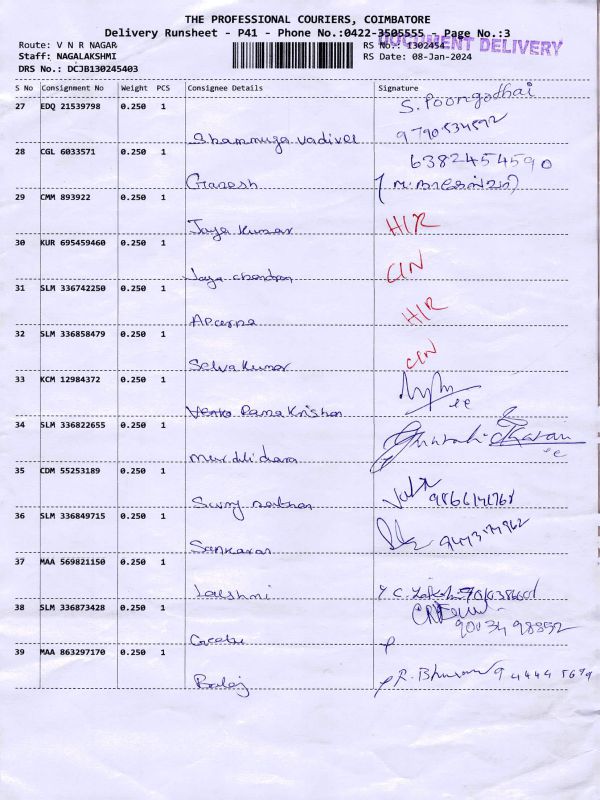 THE PROFESSIONAL COURIERS, COIMBATORE
Delivery Runsheet - P41 - Phone No.:0422-3505555 - Page No.:3
Route: V N R NAGAR RS No.: 1302454 DOCUMENT DELIVERY
Staff: NAGALAKSHMI RS Date: 08-Jan-2024
DRS No.: DCJB130245403
S No Consignment No Weight PCS Consignee Details Signature
27 EDQ 21539798 0.250 1 S. Poongodhai
Shanmuga vadivel 9790534592
28 CGL 6033571 0.250 1 6382454590
Ganesh
29 CMM 893922 0.250 1
Jaya kumar H/R
30 KUR 695459460 0.250 1
Jaya chandran C/N
31 SLM 336742250 0.250 1
Aparna H/R
32 SLM 336858479 0.250 1
Selva kumar C/N
33 KCM 12984372 0.250 1
Venko Rama Krishan
34 SLM 336822655 0.250 1
35 CDM 55253189 0.250 1
36 SLM 336849715 0.250 1
Sankaran
37 MAA 569821150 0.250 1
Lakshmi
38 SLM 336873428 0.250 1
Geetu 9003498552
39 MAA 863297170 0.250 1
Balaj